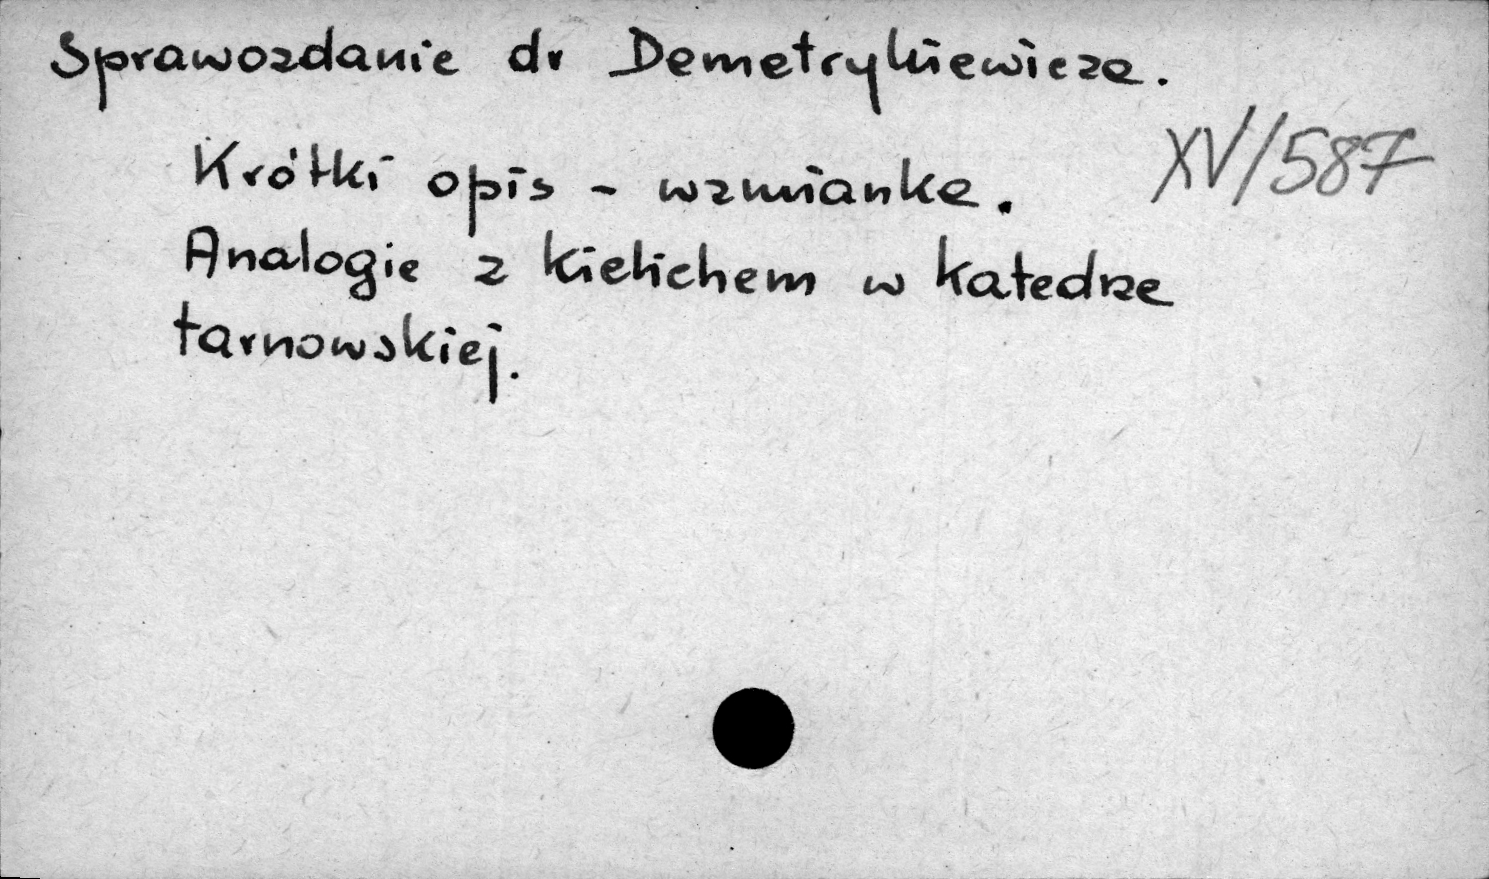 Sprawozdanie dr Demetrykiewicza.
XV/587
Krótki opis - wzmianka.
Analogie z kielichem w katedrze
tarnowskiej.